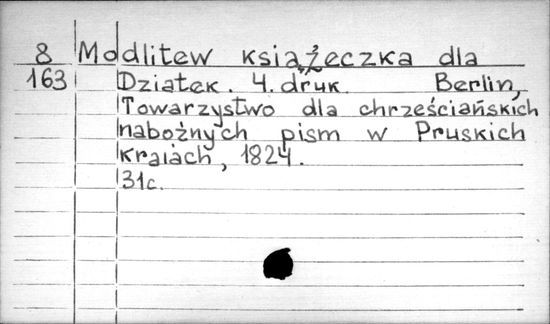 8 Modlitew książeczka dla
163 Dziatek. 4. druk. Berlin,
Towarzystwo dla chrześciańskich
nabożnych pism w Pruskich
kraiach, 1824.
31c.